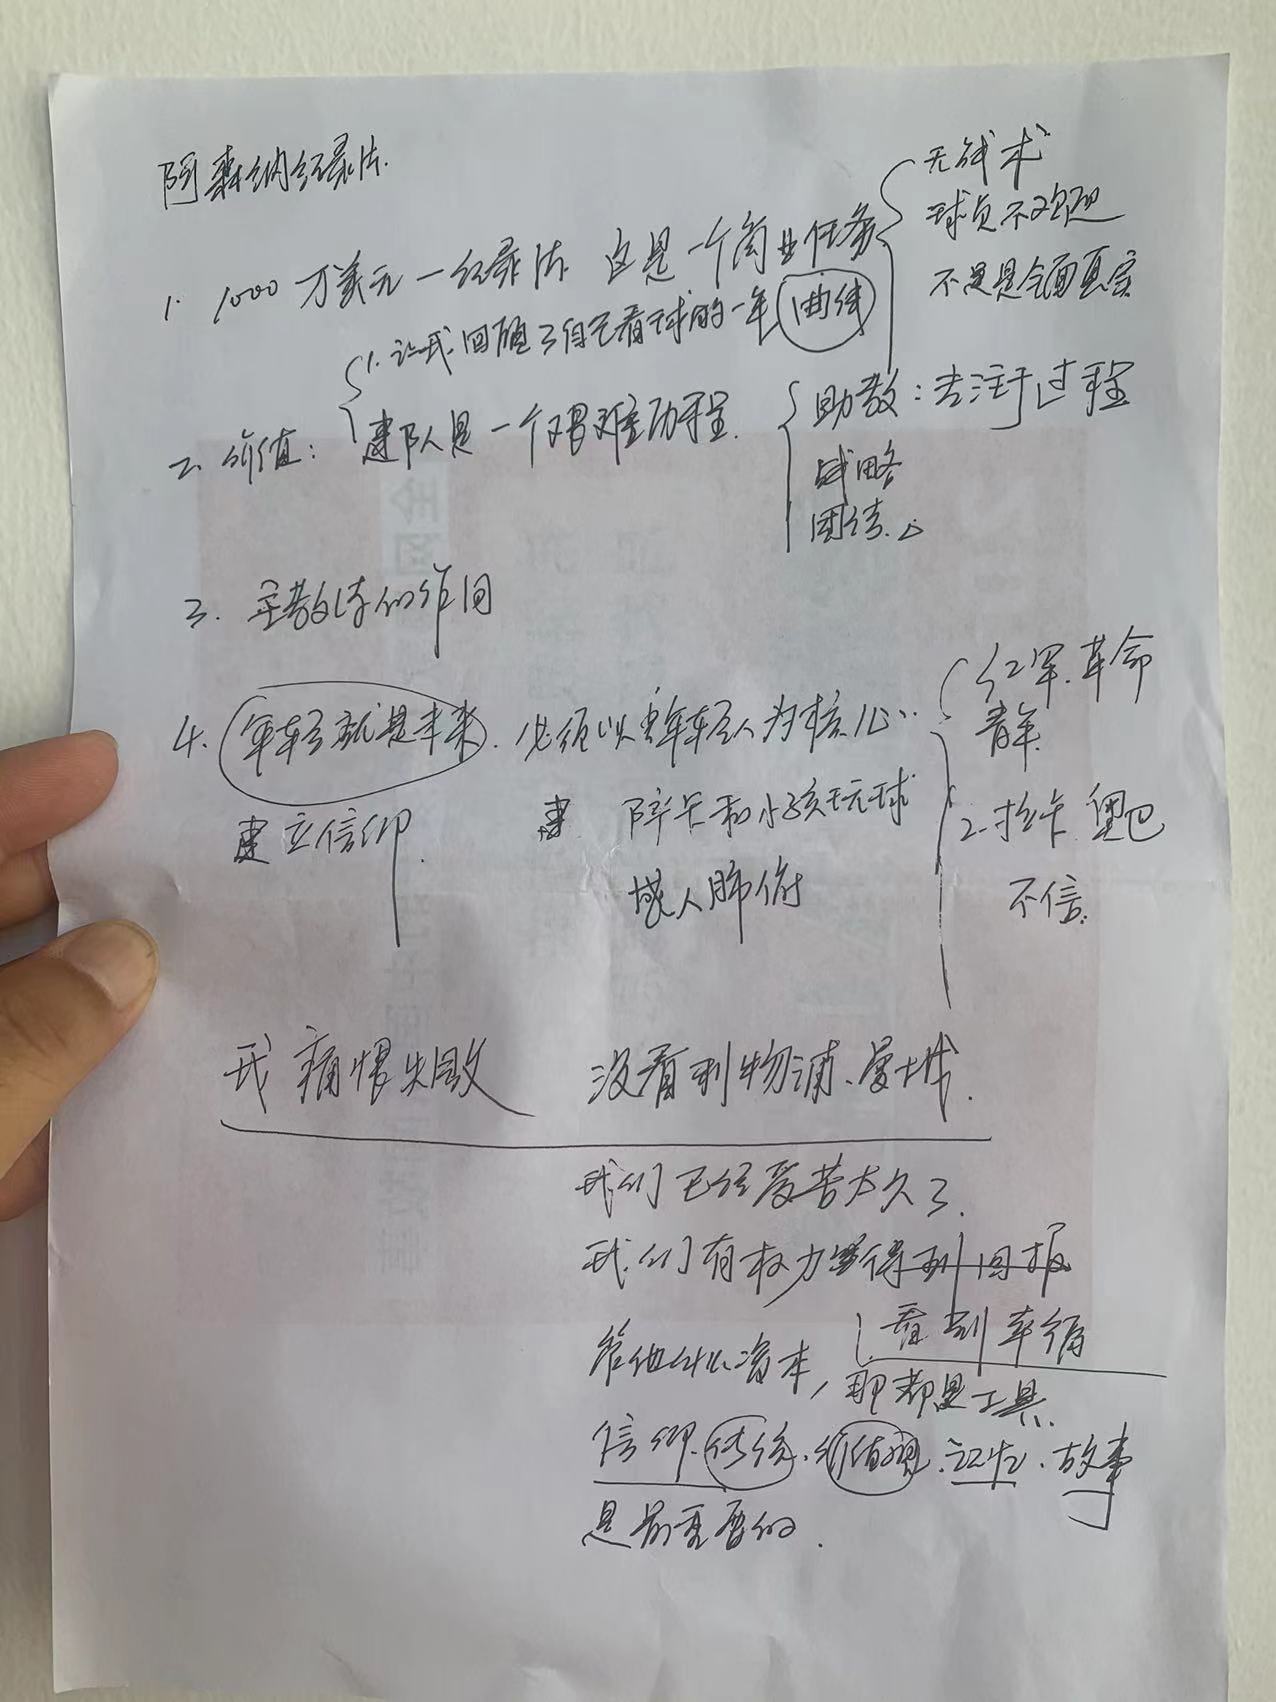 阿森纳纪录片.
1. 1000万美元一纪录片 这是一个商业任务
无战术
球员不欢迎
不是是全面真实
1. 让我回顾了自己看球的一年 曲线
2. 价值: 建队是一个艰难历程.
助教: 专注于过程
战略
团结.
3. 主教练的作用
4. 年轻就是未来. 必须以年轻人为核心..
红军.革命
青年.
建立信仰.
建 阵长和小孩玩球
2. 拉卡 奥巴
感人肺俯
不信.
我痛恨失败 没看利物浦、曼城.
我们已经受苦太久了.
我们有权力得到回报
看到幸福
管他什么资本, 那都是工具.
信仰.传统.价值观.记忆.故事
是最重要的.